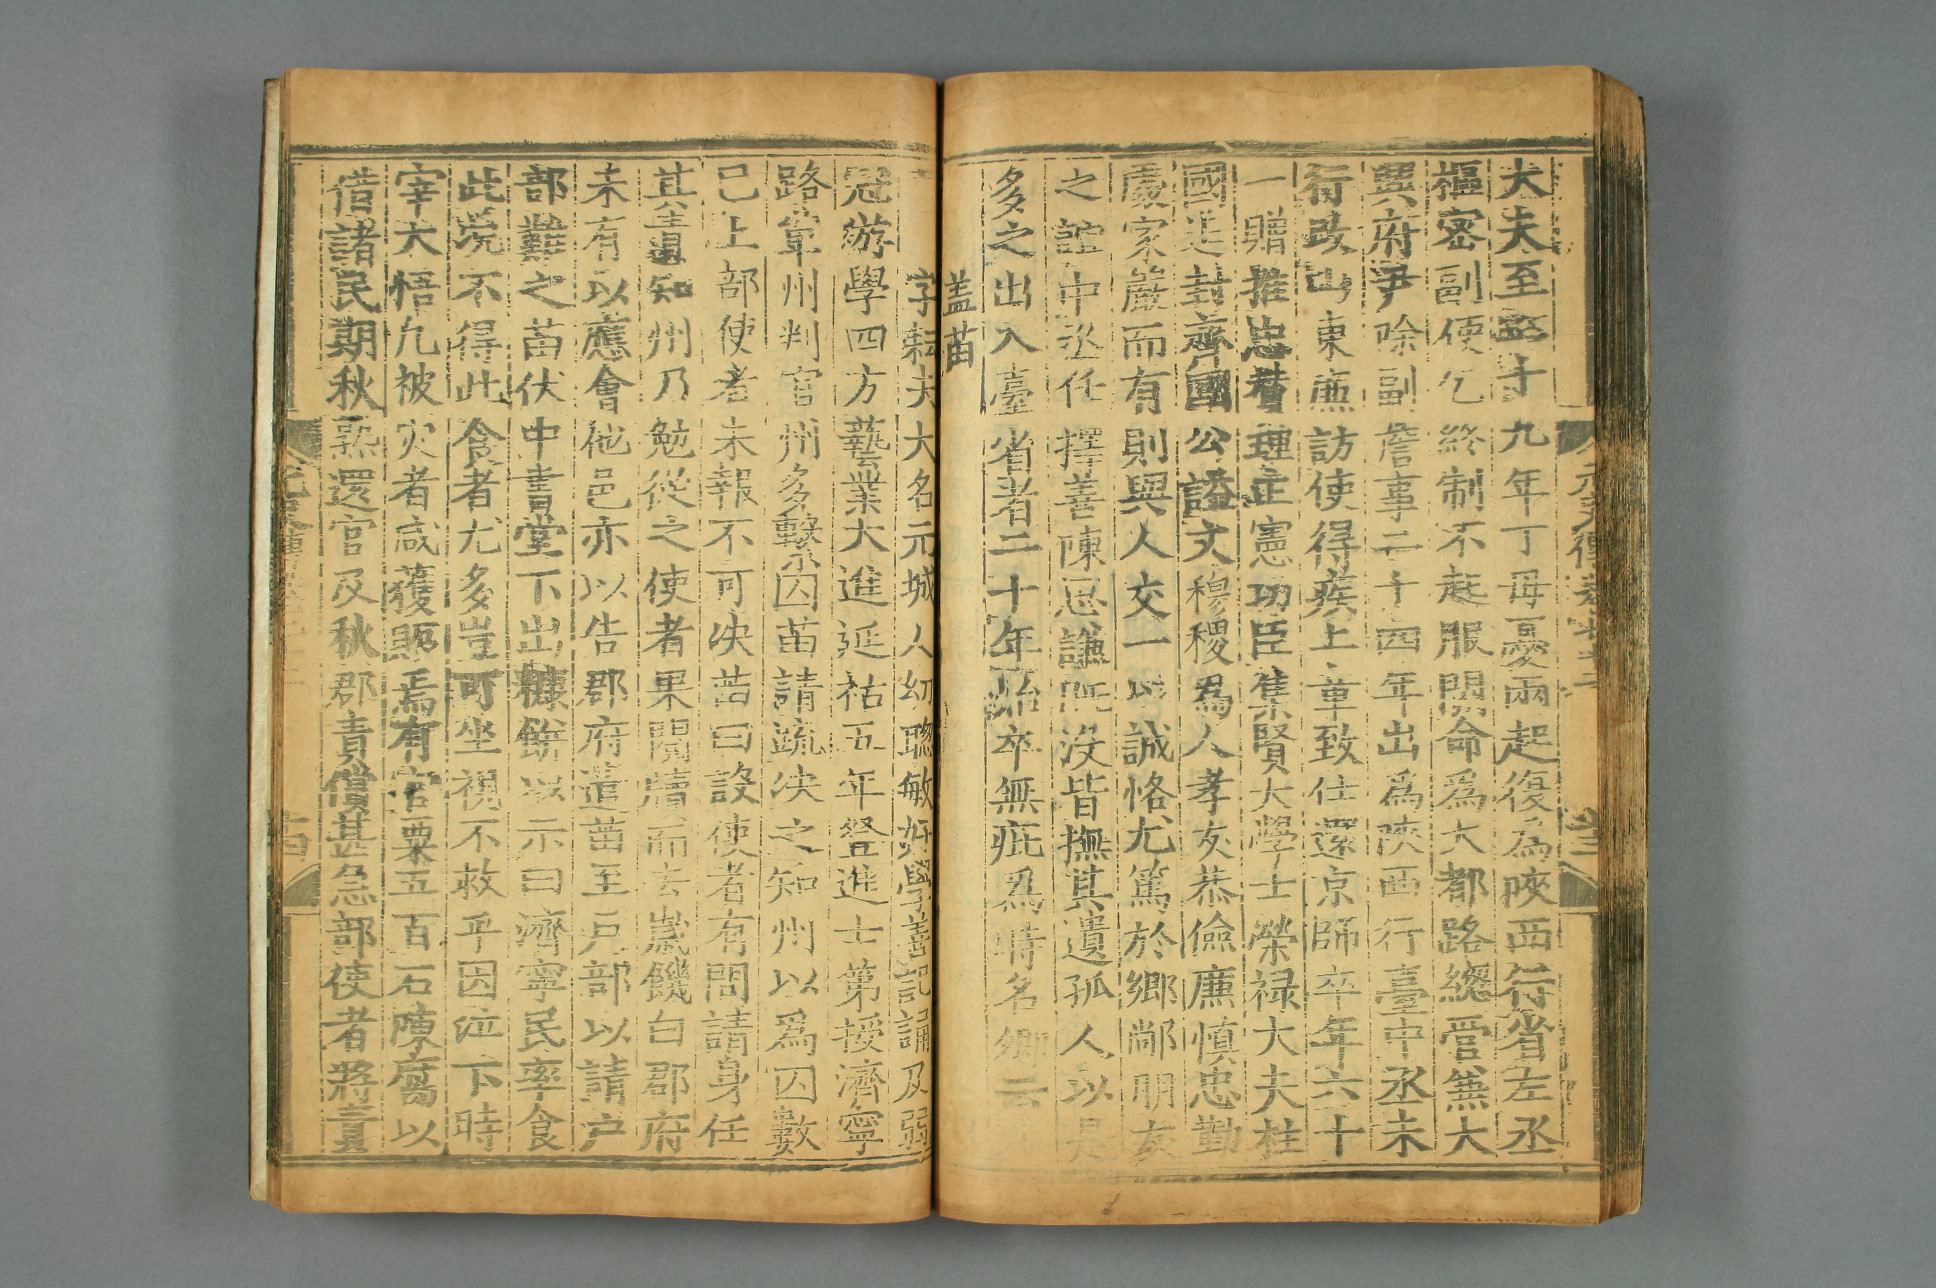 大夫至至十九年丁母憂兩起復爲陝西行省左丞
樞密副使乞終制不起服闋命爲大都路總管兼大
興府尹除副詹事二十四年出爲陝西行臺中丞未
行改山東廉訪使得疾上章致仕還京師卒年六十
一贈推忠贊理正憲功臣集賢大學士榮祿大夫柱
國追封齊國公諡文穆稷爲人孝友恭儉廉慎忠勤
處家嚴而有則與人交一以誠恪尤篤於鄉鄰朋友
之誼中丞任擇善陳思謙旣沒皆撫其遺孤人以是
多之出入臺省者二十年始卒無疵爲時名卿云
蓋苗
字耘夫大名元城人幼聰敏好學善記誦及弱
冠游學四方藝業大進延祐五年登進士第授濟寧
路單州判官州多繫囚苗請疏決之知州以爲囚數
已上部使者未報不可決苗曰設使者有問請身任
其責知州乃勉從之使者果閱牘而去歲饑白郡府
未有以應會他邑亦以告郡府遣苗至戶部以請戶
部難之苗伏中書堂下出糠餅以示曰濟寧民率食
此況不得此食者尤多豈可坐視不救乎因泣下時
宰大悟凡被災者咸獲賑焉有官粟五百石陳腐以
借諸民期秋熟還官及秋郡責償甚急部使者將責